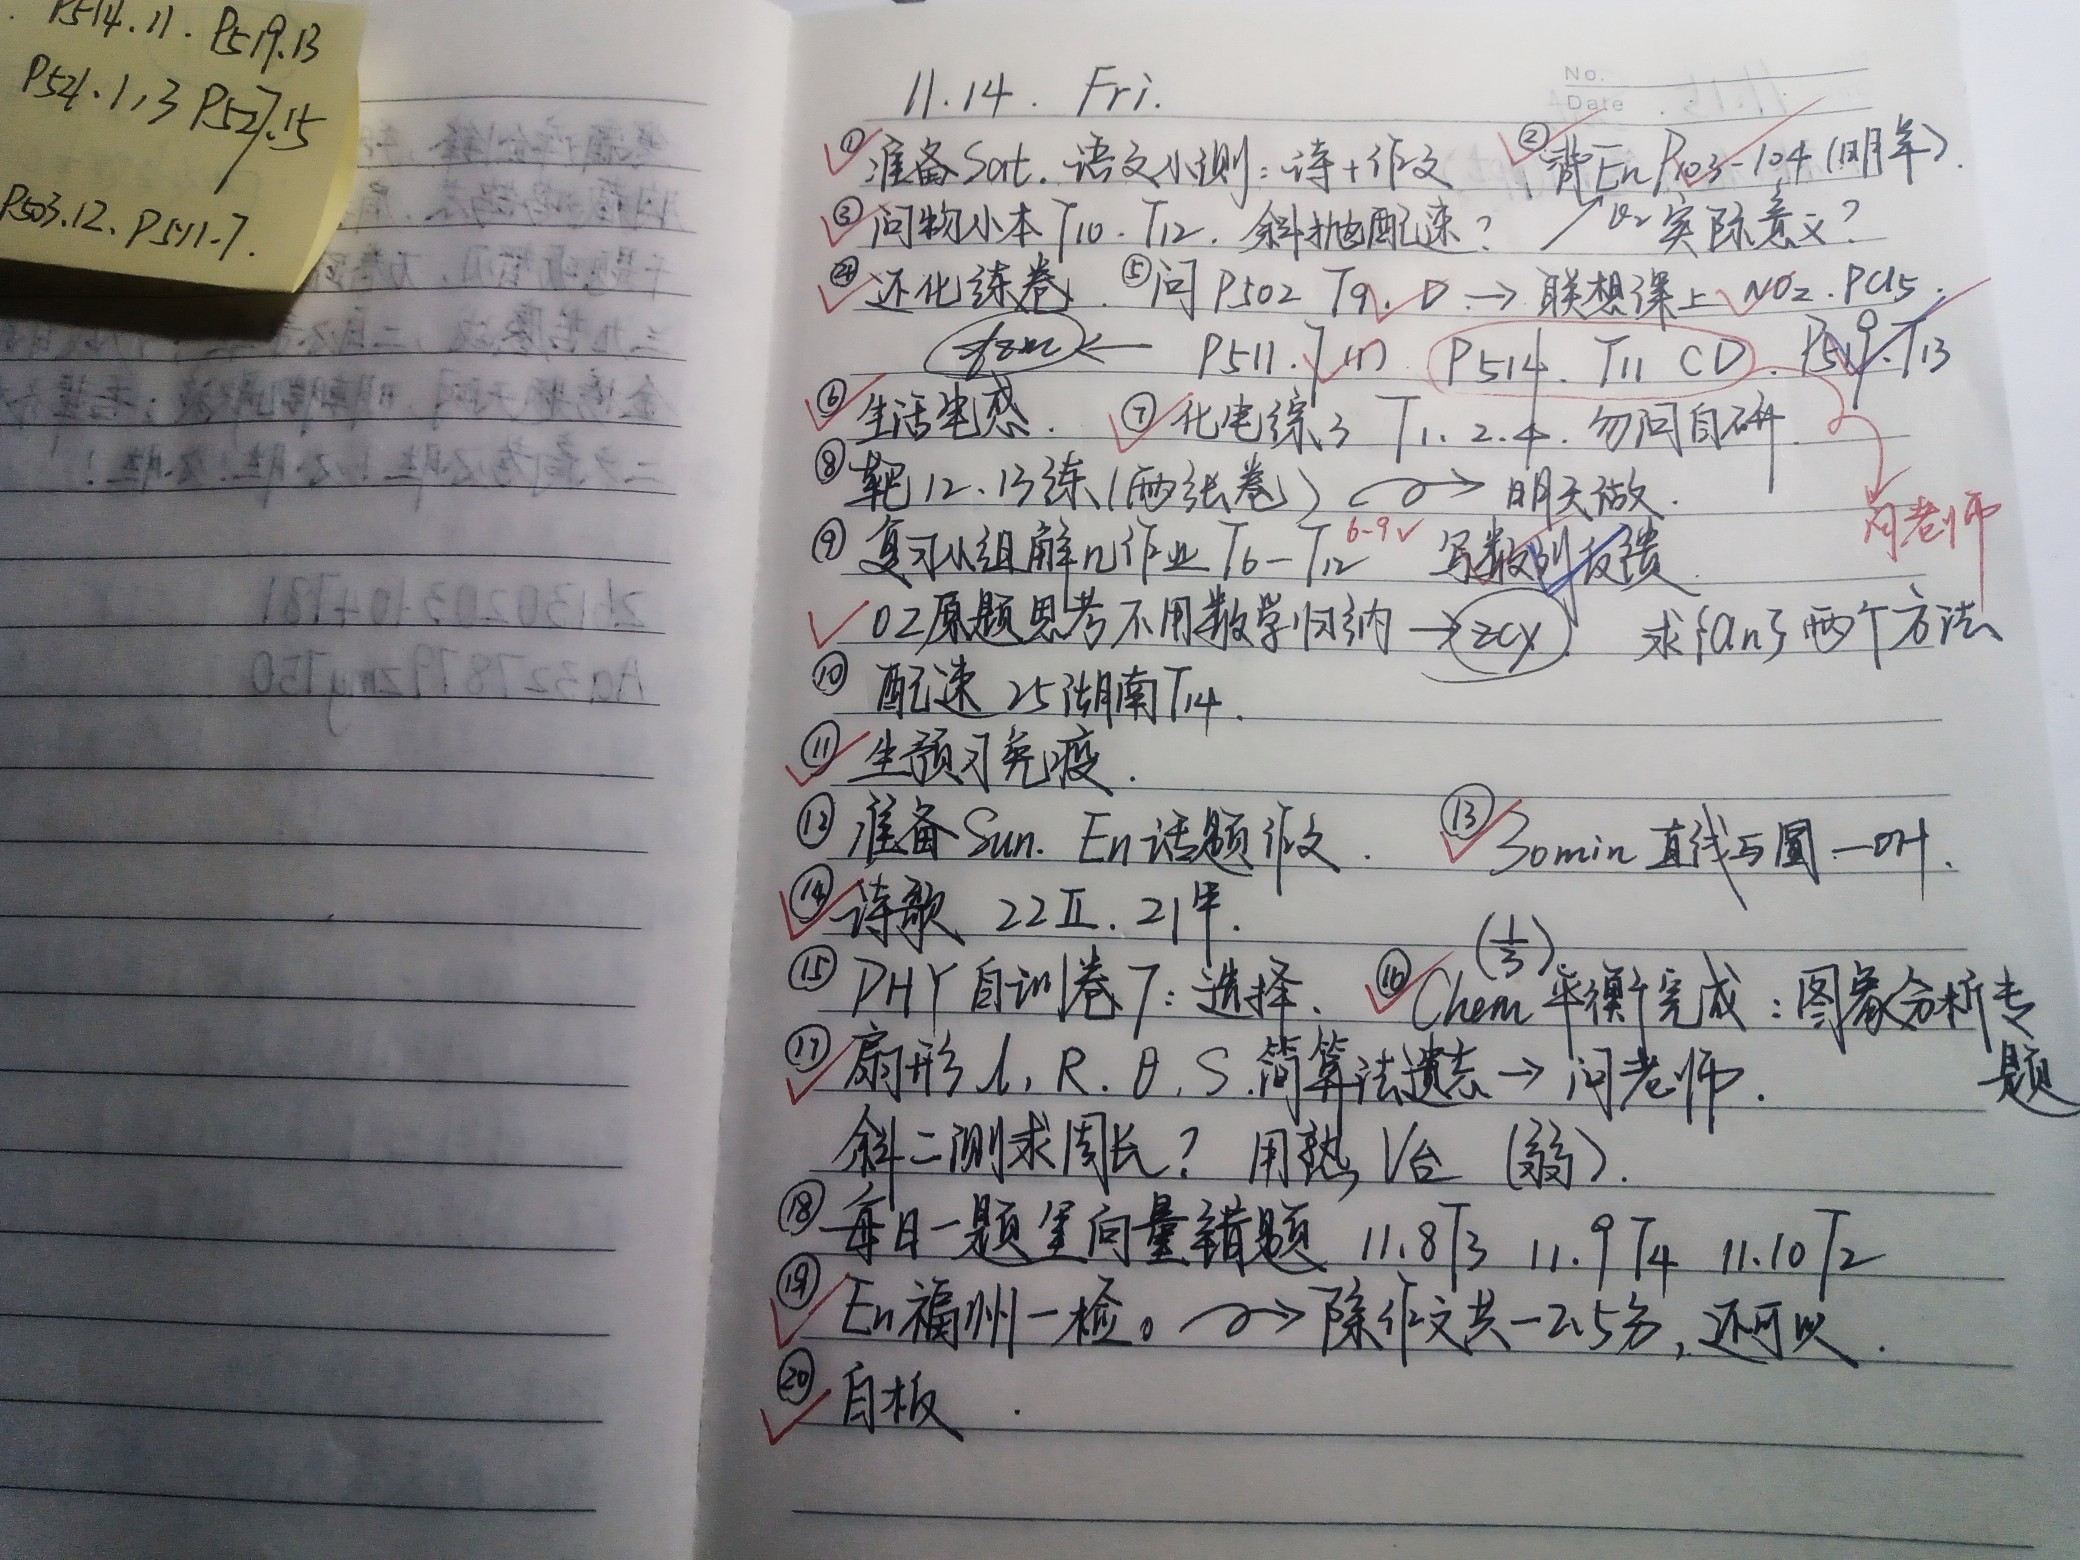 P514.11. P519.13
P521.1,3 P527.15
P503.12. P511.7.
No.
Date
11.14. Fri.
① 准备Sat.语文小测：诗+作文 ② 背En P103-104(明年).
③ 问物小本T10.T12. 斜抛配速？ ↗ v2实际意义？
④ 还化练卷. ⑤问P502 T9.D → 联想课上NO2.PCl5.
← P511.7(1) P514.T11 CD. P519.T13
⑥ 生活笔感. ⑦ 化电综3 T1.2.4.勿问自研.
⑧ 靶12.13练(两张卷) → 明天做.
问老师
⑨ 复习小组解几作业T6-T12 6-9√ 写数列反馈.
02原题思考不用数学归纳→zcy 求{an}两个方法
⑩ 配速 25湖南T14.
⑪ 生预习免疫.
⑫ 准备Sun. En话题作文. ⑬ 30min直线与圆
⑭ 诗歌 22Ⅱ.21甲.
(1/3)
⑮ PHY自训卷7：选择. ⑯ Chem平衡完成：图象分析专
题
⑰ 扇形l,R.θ.S.简算法遗忘→问老师.
斜二测求周长？用熟V台(弱).
⑱ 每日一题 向量错题 11.8T3 11.9T4 11.10T2
⑲ En福州一检。→ 除作文共-2.5分,还可以.
⑳ 白板.